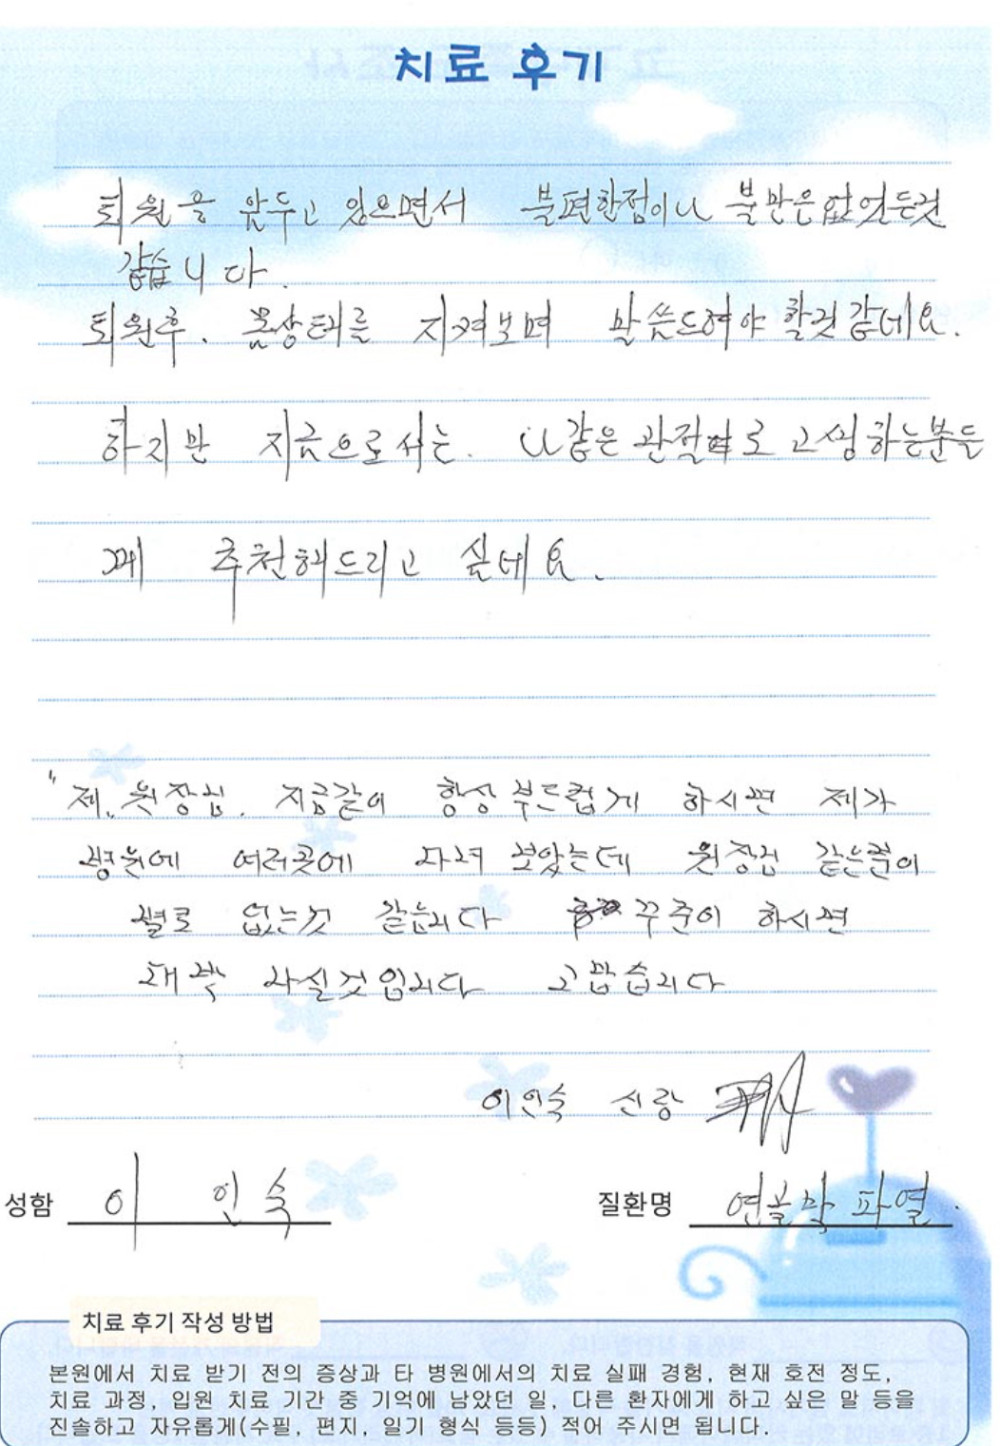 치료 후기
퇴원을 앞두고 있으면서 불편한점이나 불만은 없었든것
같습니다.
퇴원후. 몸상태를 지켜보며 말씀드려야 할것 같네요.
하지만 지금으로서는. 나같은 관절
로 고생하는분들
께 추천해드리고 싶네요.
원장님. 지금같이 항상 부드럽게 하시면 제가
병원에 여러곳에 다녀 보았는데 원장님 같은분이
별로 없는것 같습니다 꾸준이 하시면
대박 나실것입니다 고맙습니다
이인숙 신랑
성함 이 인 숙 질환명 연골막 파열.
치료 후기 작성 방법
본원에서 치료 받기 전의 증상과 타 병원에서의 치료 실패 경험, 현재 호전 정도,
치료 과정, 입원 치료 기간 중 기억에 남았던 일, 다른 환자에게 하고 싶은 말 등을
진솔하고 자유롭게(수필, 편지, 일기 형식 등등) 적어 주시면 됩니다.